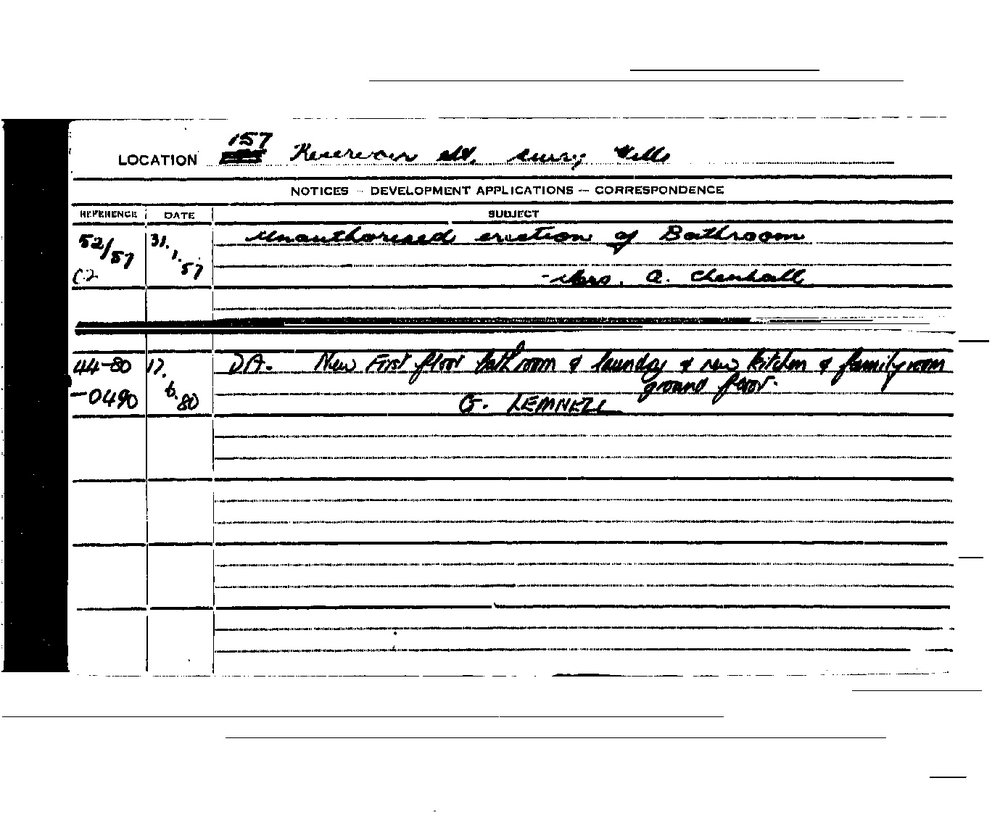 LOCATION 157 Reservoir St. Surry Hills
NOTICES — DEVELOPMENT APPLICATIONS — CORRESPONDENCE
REFERENCE DATE SUBJECT
52/57 31.1.57 Unauthorised erection of Bathroom
C2 - Mrs. A. Chenhall
44-80 17.6.80 D.A. New First floor bathroom & laundry & new kitchen & family room
-0490 ground floor.
G.